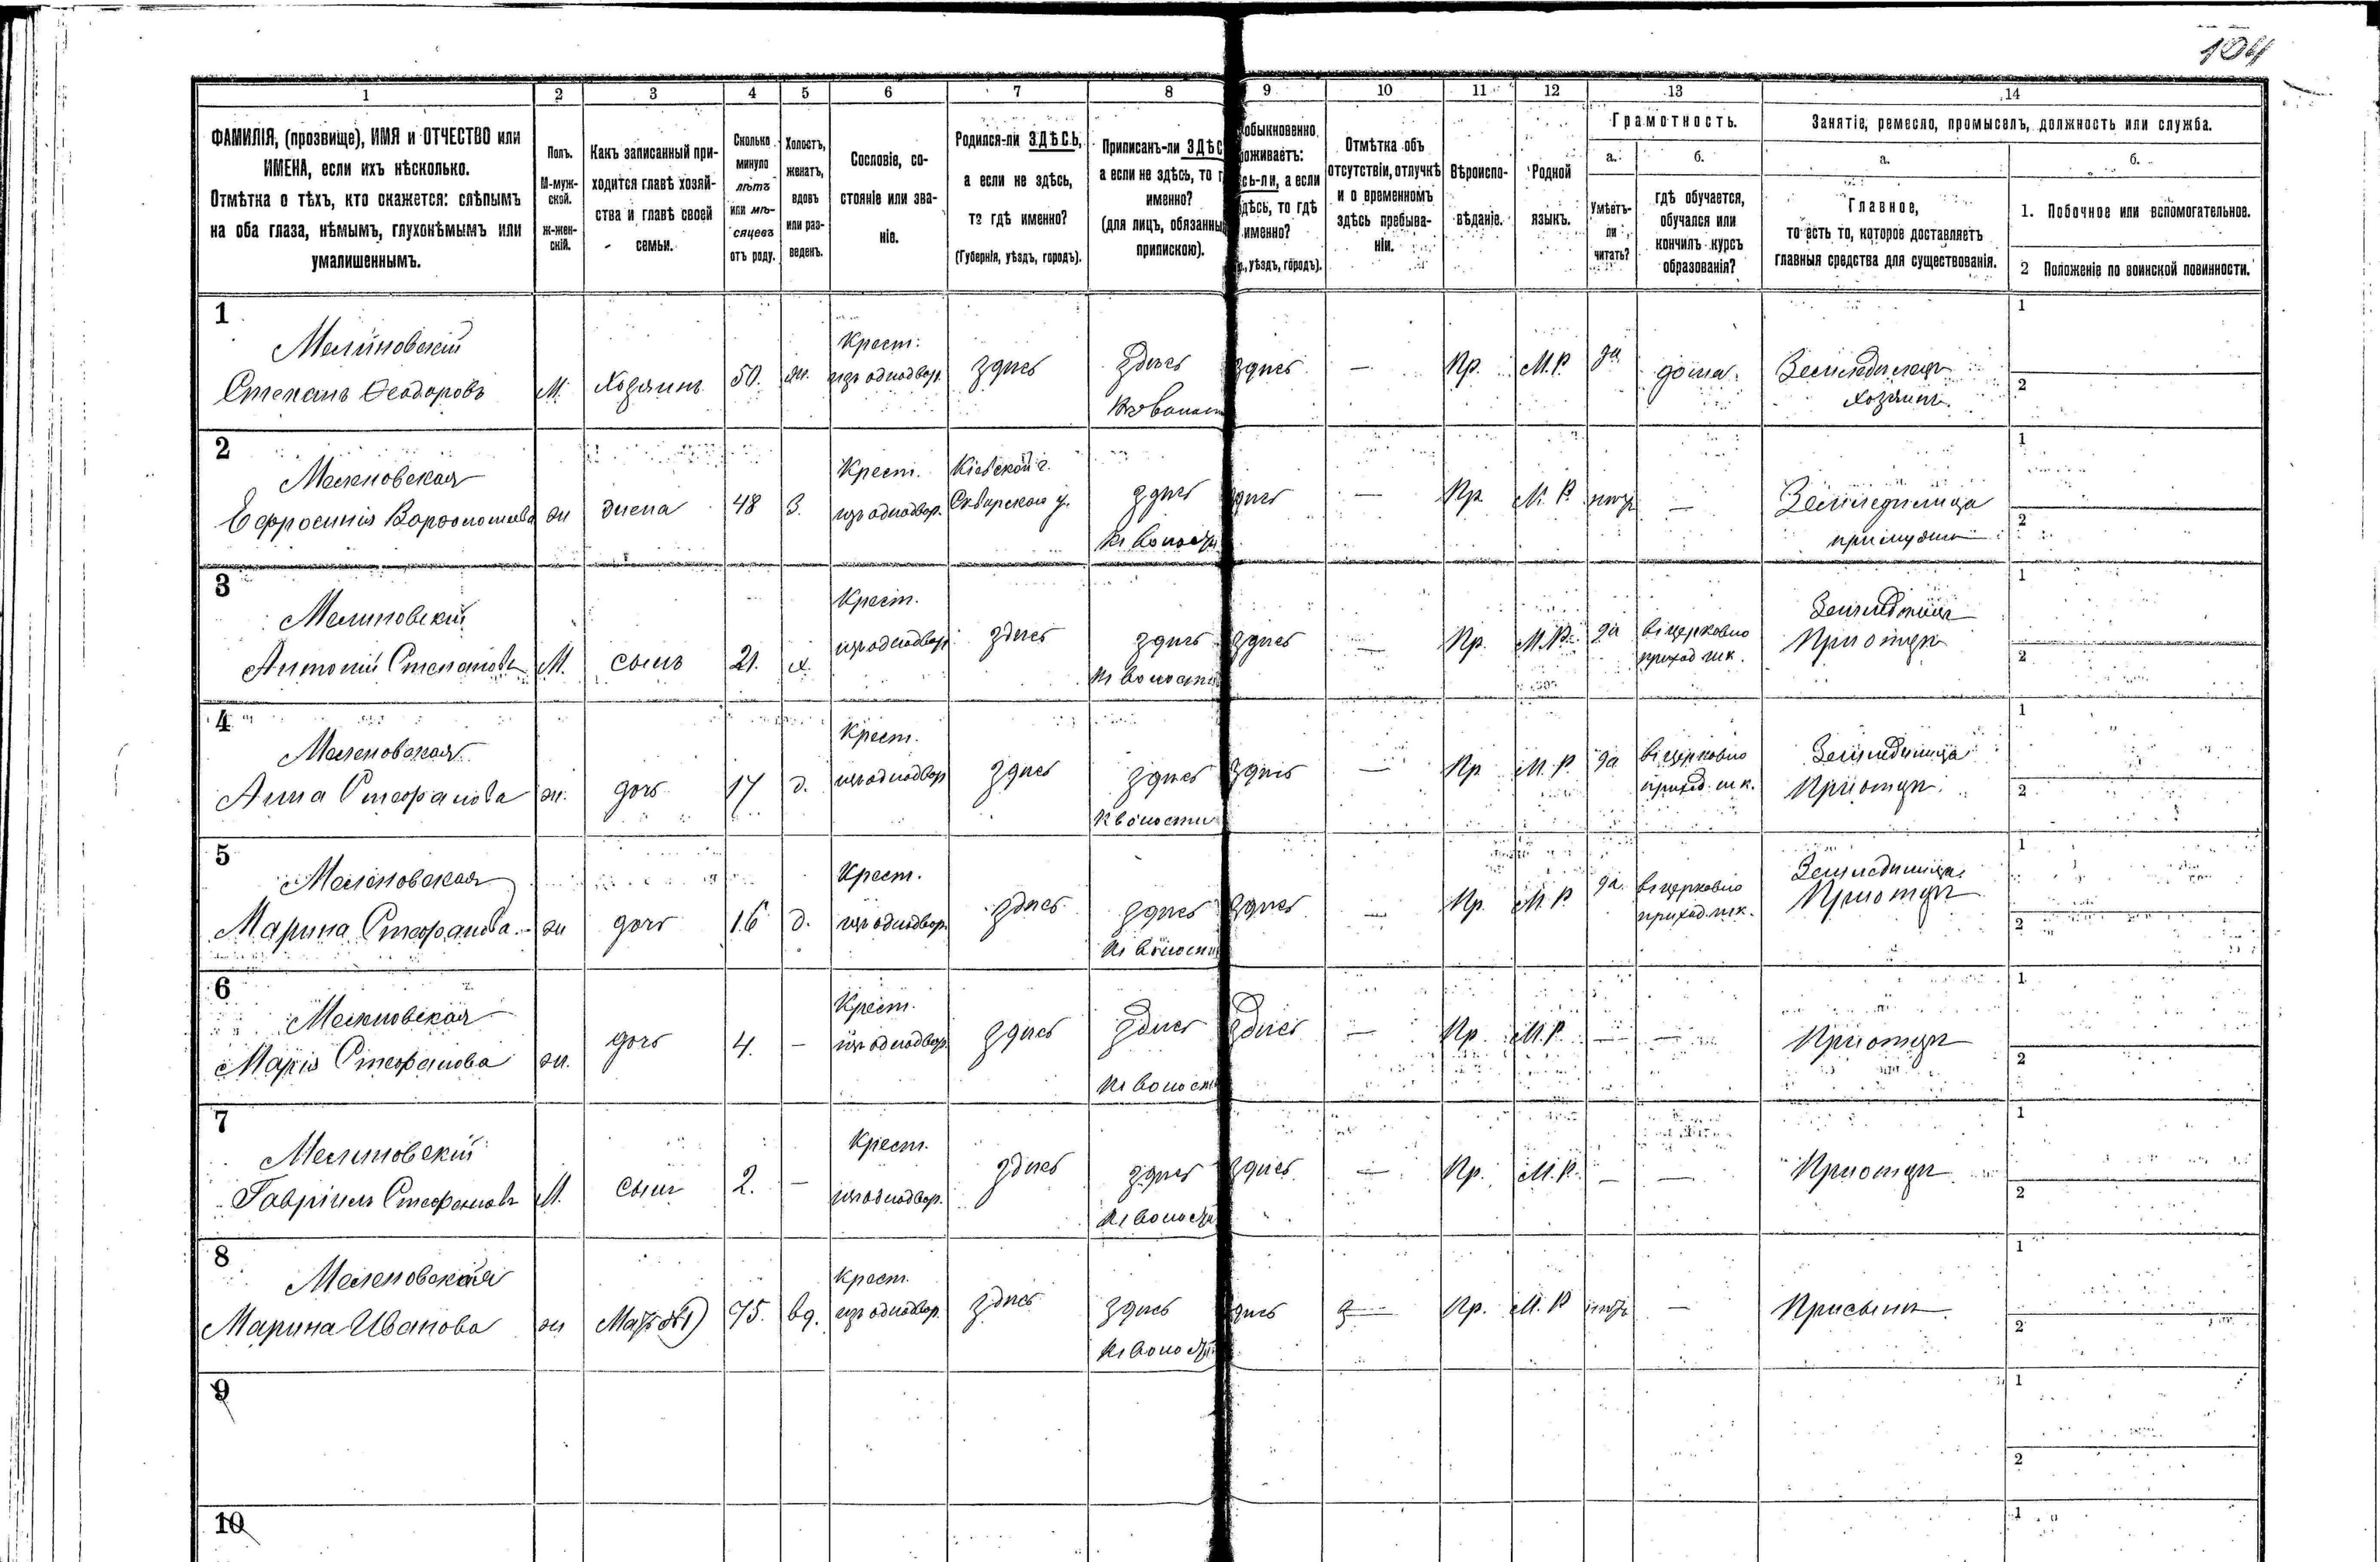 104
1 2 3 4 5 6 7 8 9 10 11 12 13 14
ФАМИЛІЯ, (прозвище), ИМЯ и ОТЧЕСТВО или
ИМЕНА, если ихъ нѣсколько.
Отмѣтка о тѣхъ, кто окажется: слѣпымъ
на оба глаза, нѣмымъ, глухонѣмымъ или
умалишеннымъ.
Полъ.
М-муж-
ской.
Ж-жен-
скій.
Какъ записанный при-
ходится главѣ хозяй-
ства и главѣ своей
семьи.
Сколько
минуло
лѣтъ
или мѣ-
сяцевъ
отъ роду.
Холостъ,
женатъ,
вдовъ
или раз-
веденъ.
Сословіе, со-
стояніе или зва-
ніе.
Родился-ли ЗДѢСЬ,
а если не здѣсь,
то гдѣ именно?
(Губернія, уѣздъ, городъ).
Приписанъ-ли ЗДѢС
а если не здѣсь, то г
именно?
(для лицъ, обязанны
припискою).
обыкновенно
оживаетъ:
сь-ли, а если
дѣсь, то гдѣ
именно?
., уѣздъ, городъ).
Отмѣтка объ
отсутствіи, отлучкѣ
и о временномъ
здѣсь пребыва-
ніи.
Вѣроиспо-
вѣданіе.
Родной
языкъ.
Грамотность.
а. б.
Умѣетъ-
ли
читать?
гдѣ обучается,
обучался или
кончилъ курсъ
образованія?
Занятіе, ремесло, промыселъ, должность или служба.
а. б.
Главное,
то есть то, которое доставляетъ
главныя средства для существованія.
1. Побочное или вспомогательное.
2 Положеніе по воинской повинности.
1
Малиновскій
Степанъ Ѳеодоровъ
М. Хозяинъ 50. ж.
Крест.
изъ однодвор.
здѣсь
здѣсь
къ волост
здѣсь — Пр. М.Р. да дома.
Земледѣлецъ
хозяинъ
1
2
2
Малиновская
Ефросинія Варѳоломеева
ж жена 48 З.
Крест.
изъ однодвор.
Кіевской г.
Сквирскаго у.
здѣсь
къ волости
здѣсь — Пр. М.Р нѣтъ —
Земледѣлица
при мужѣ
1
2
3
Малиновскій
Антоній Степановъ
М. сынъ 21. х.
Крест.
изъ однодвор
здѣсь
здѣсь
къ волости
здѣсь — Пр. М.Р. да
въ церковно
приход шк.
Земледѣлецъ
При отцѣ
1
2
4
Малиновская
Анна Стефанова
ж. дочь 17 д.
Крест.
изъ однодвор
здѣсь
здѣсь
къ волости
здѣсь — Пр М.Р. да
въ церковно
приход. шк.
Земледѣлица
При отцѣ.
1
2
5
Малиновская
Марина Стефанова.
ж дочь 16 д.
Крест.
изъ однодвор.
здѣсь
здѣсь
къ волости
здѣсь — Пр. М.Р да.
въ церковно
приход. шк.
Земледѣлица.
При отцѣ
1
2
6
Малиновская
Марія Стефанова
ж. дочь 4. —
Крест.
изъ однодвор.
здѣсь
здѣсь
къ волости
здѣсь — Пр. М.Р. — —
При отцѣ
1
2
7
Малиновскій
Гавріилъ Стефановъ
М. сынъ 2. —
Крест.
изъ однодвор.
здѣсь
здѣсь
къ волости
здѣсь — Пр. М.Р. — —
При отцѣ
1
2
8
Малиновская
Марина Иванова
ж Мать №1) 75. вд.
Крест.
изъ однодвор.
здѣсь
здѣсь
къ волости
здѣсь — Пр. М.Р нѣтъ —
При сынѣ
1
2
9
1
2
10
1